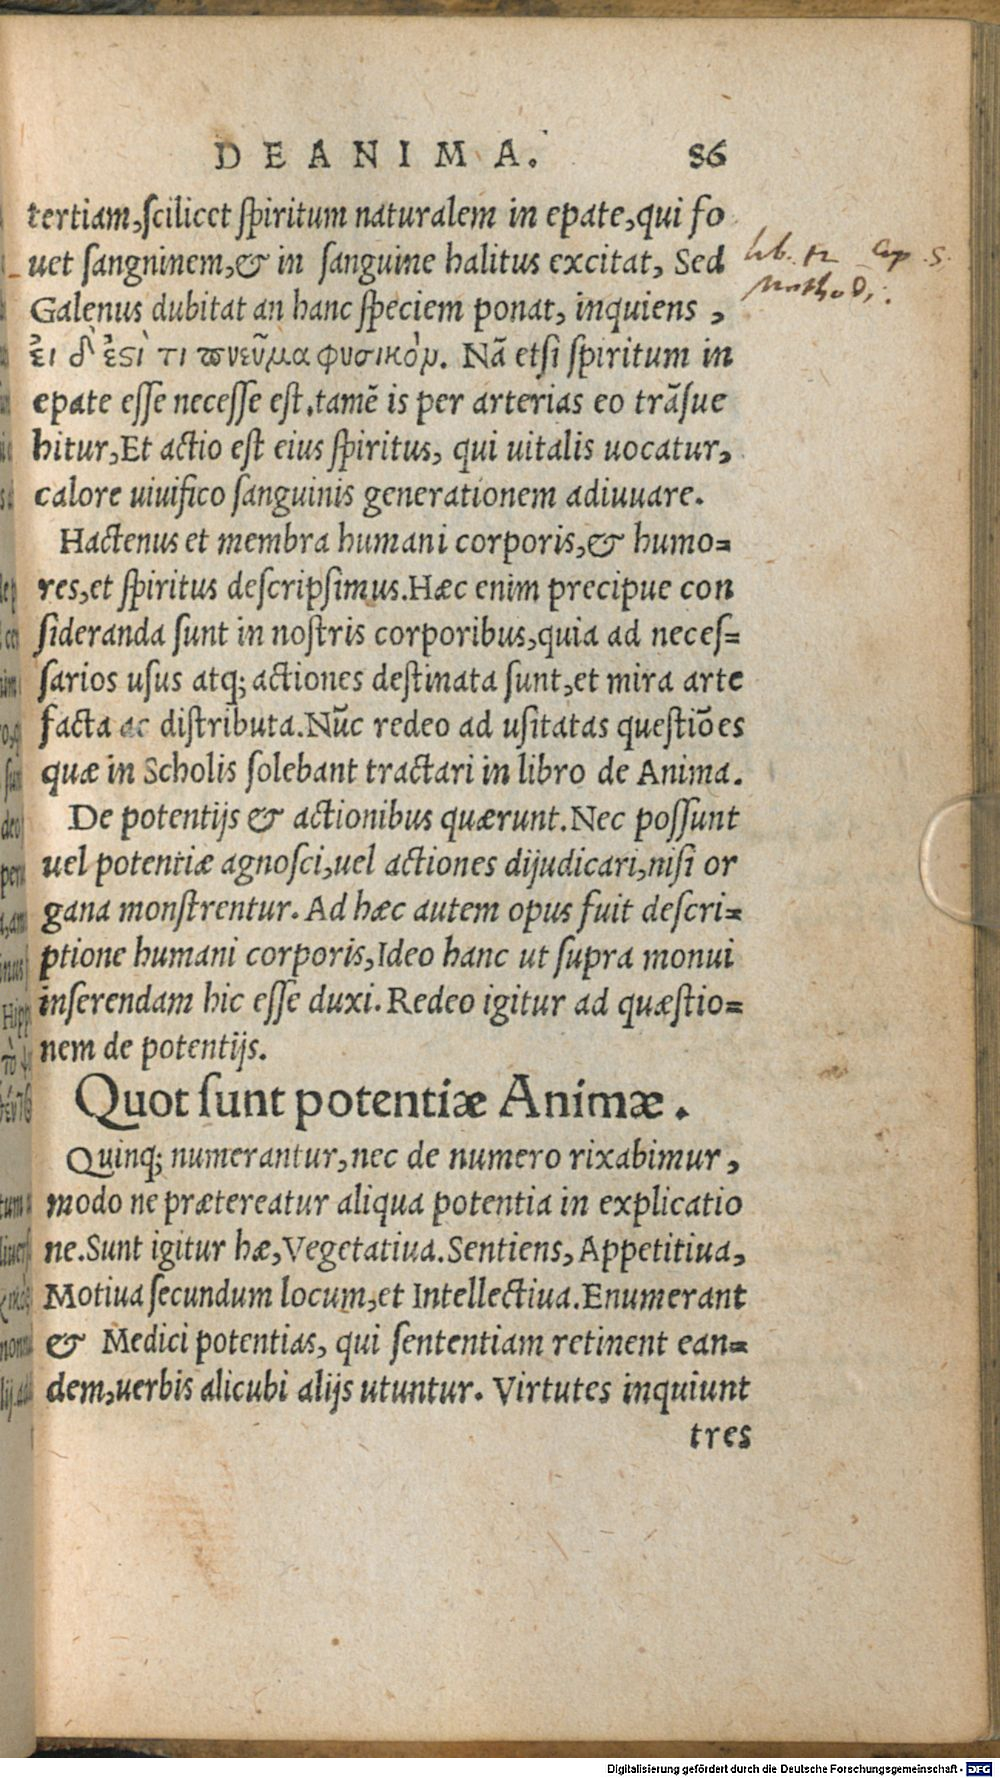 DE ANIMA. 86
tertiam,scilicet spiritum naturalem in epate,qui fo
uet sangninem,& in sanguine halitus excitat, Sed
lib. 12 cap. 5.
Methodi.
Galenus dubitat an hanc speciem ponat, inquiens ,
ἐι δ' ἐϛὶ τι πνεῦμα φυσικὸν. Nā etsi spiritum in
epate esse necesse est,tamē is per arterias eo trāsue
hitur,Et actio est eius spiritus, qui uitalis uocatur,
calore uiuifico sanguinis generationem adiuuare.
Hactenus et membra humani corporis,& humo=
res,et spiritus descripsimus.Hæc enim precipue con
sideranda sunt in nostris corporibus,quia ad neces=
sarios usus atq; actiones destinata sunt,et mira arte
facta ac distributa.Nūc redeo ad usitatas questiōes
quæ in Scholis solebant tractari in libro de Anima.
De potentijs & actionibus quærunt.Nec possunt
uel potentiæ agnosci,uel actiones dijudicari,nisi or
gana monstrentur. Ad hæc autem opus fuit descri=
ptione humani corporis,Ideo hanc ut supra monui
inserendam hic esse duxi.Redeo igitur ad quæstio=
nem de potentijs.
Quot sunt potentiæ Animæ.
Quinq; numerantur,nec de numero rixabimur,
modo ne prætereatur aliqua potentia in explicatio
ne.Sunt igitur hæ,Vegetatiua.Sentiens, Appetitiua,
Motiua secundum locum,et Intellectiua.Enumerant
& Medici potentias, qui sententiam retinent ean=
dem,uerbis alicubi alijs utuntur. Virtutes inquiunt
tres
Digitalisierung gefördert durch die Deutsche Forschungsgemeinschaft - DFG